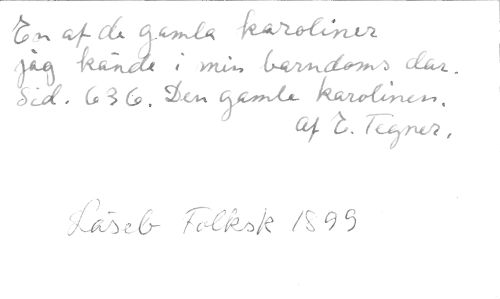 En af de gamla karoliner
jag kände i min barndoms dar.
Sid. 636. Den gamle karolinen.
af E. Tegner.
Läseb Folksk 1899